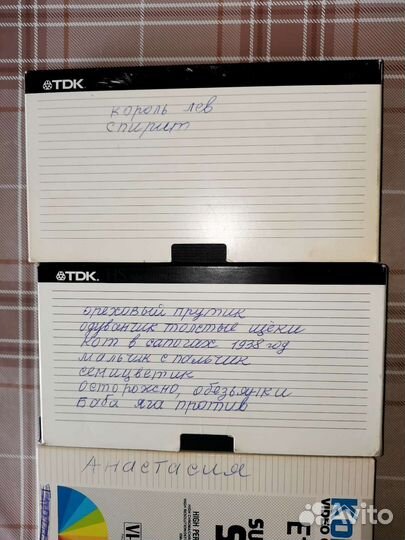 TDK
король лев
спирит
TDK
ореховый прутик
одуванчик толстые щёки
кот в сапогах 1938 год
мальчик с пальчик
семицветик
осторожно, обезьянки
Баба яга против
Анастасия
VIDEO
VH
HIGH PE
SU
E
Avito